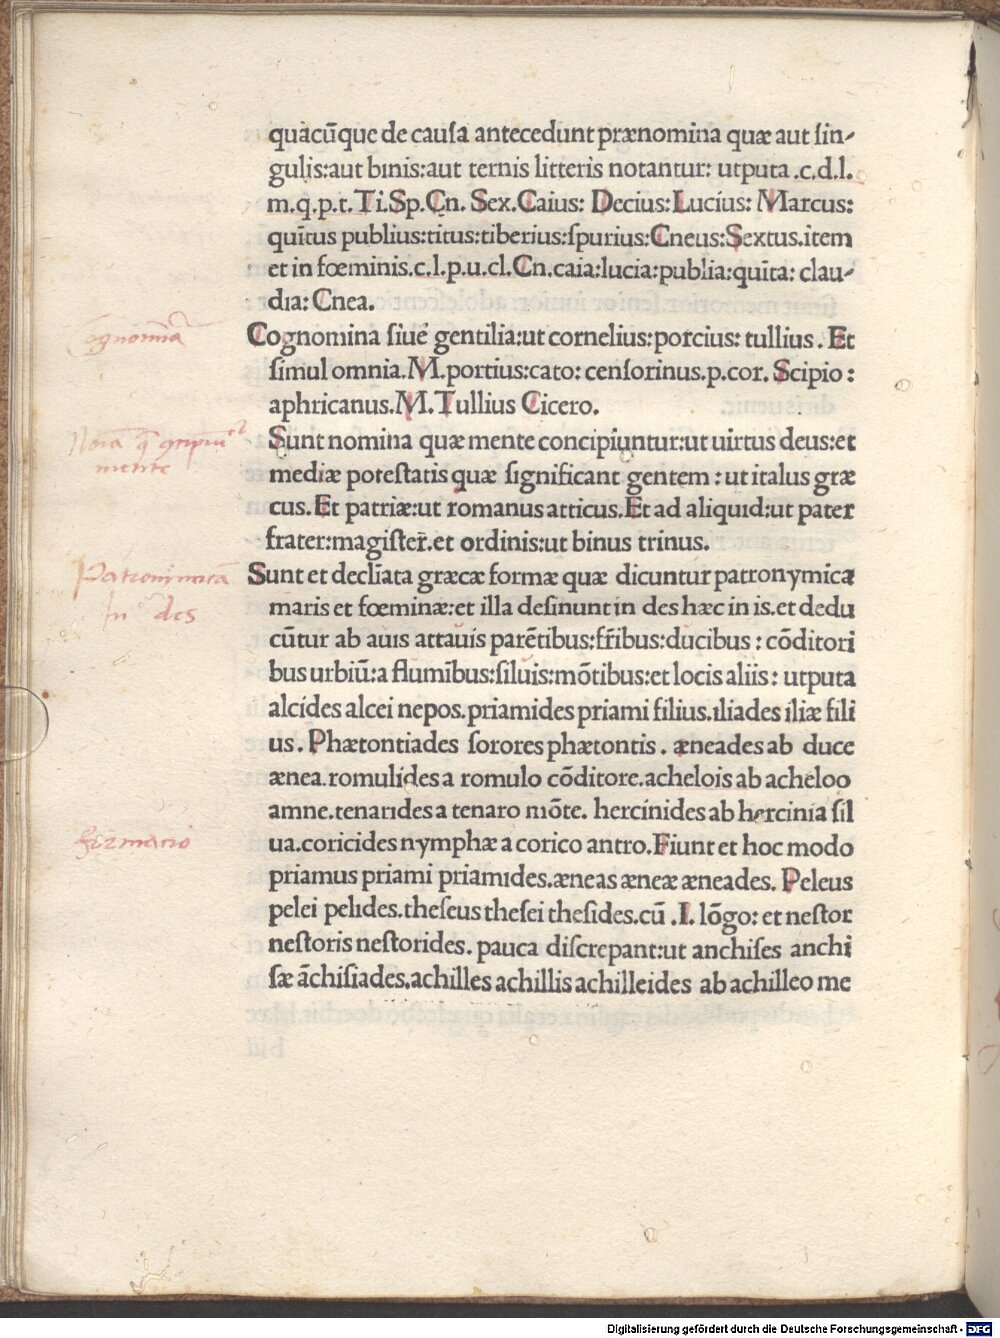 quacūque de cauſa antecedunt prænomina quæ aut ſin-
gulis:aut binis:aut ternis litteris notantur: utputa .c.d.l.
m.q.p.t.Ti.Sp.Cn. Sex.Caius: Decius: Lucius: Marcus:
quītus publius:titus:tiberius:ſpurius:Cneus:Sextus.item
et in fœminis.c.l.p.u.cl.Cn.caia:lucia:publia:quīta: clau-
dia: Cnea.
Cognomina ſiue gentilia:ut cornelius:porcius: tullius. Et
ſimul omnia.M.portius:cato: cenſorinus.p.cor. Scipio:
aphricanus.M.Tullius Cicero.
Sunt nomina quæ mente concipiuntur:ut uirtus deus:et
mente
mediæ poteſtatis quæ ſignificant gentem : ut italus græ
cus.Et patriæ:ut romanus atticus.Et ad aliquid:ut pater
frater:magiſter.et ordinis:ut binus trinus.
Patronimica
Sunt et declīata græcæ formæ quæ dicuntur patronymica
in des
maris et fœminæ:et illa deſinunt in des hæc in is.et dedu
cūtur ab auis attauis parētibus:fr̄ibus:ducibus : cōditori
bus urbiū:a flumībus:ſiluis:mōtibus:et locis aliis: utputa
alcides alcei nepos.priamides priami filius.iliades iliæ fili
us. Phætontiades ſorores phætontis. æneades ab duce
ænea.romulides a romulo cōditore.achelois ab acheloo
amne.tenarides a tenaro mōte. hercinides ab hercinia ſil
formacio
ua.coricides nymphæ a corico antro.Fiunt et hoc modo
priamus priami priamides.æneas æneæ æneades. Peleus
pelei pelides.theſeus theſei theſides.cū .I. lōgo: et neſtor
neſtoris neſtorides. pauca diſcrepant:ut anchiſes anchi
ſæ āchiſiades.achilles achillis achilleides ab achilleo me
Digitalisierung gefördert durch die Deutsche Forschungsgemeinschaft - DFG